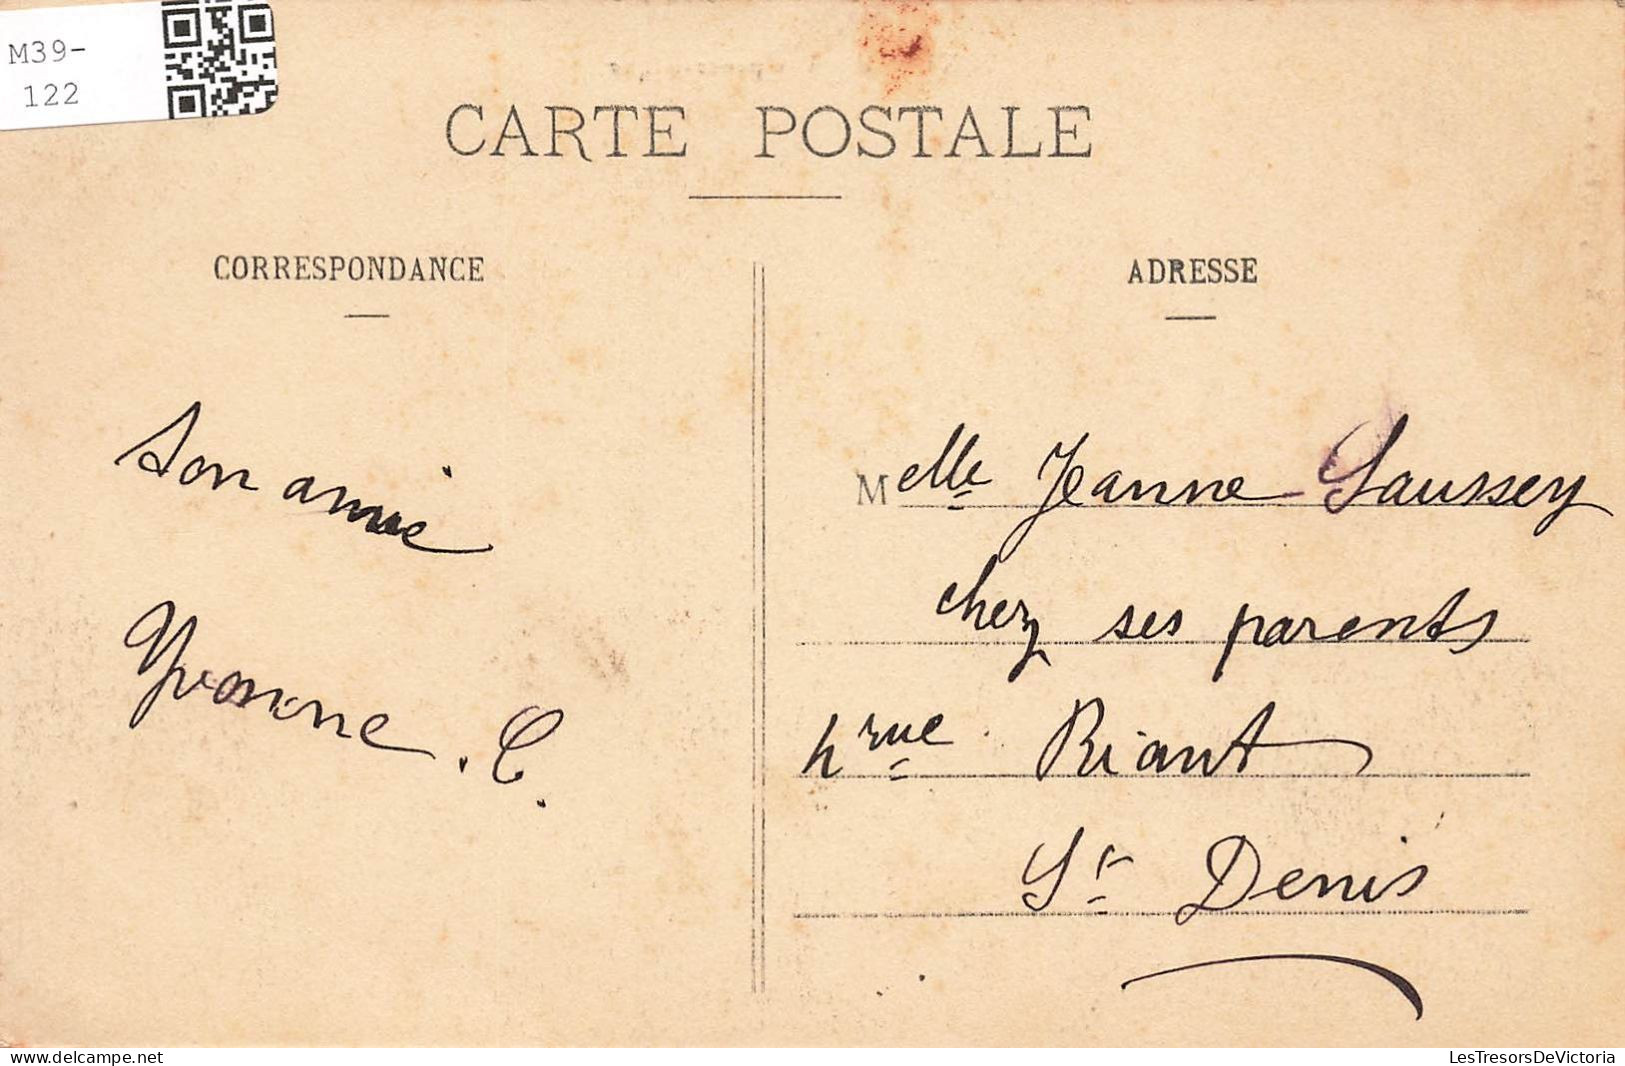 M39-
122
CARTE POSTALE
CORRESPONDANCE
ADRESSE
Son amie
Yvonne. C.
Melle Jeanne Saussey
chez ses parents
4 rue Riant
St Denis
delcampe.net
LesTresorsDeVictoria